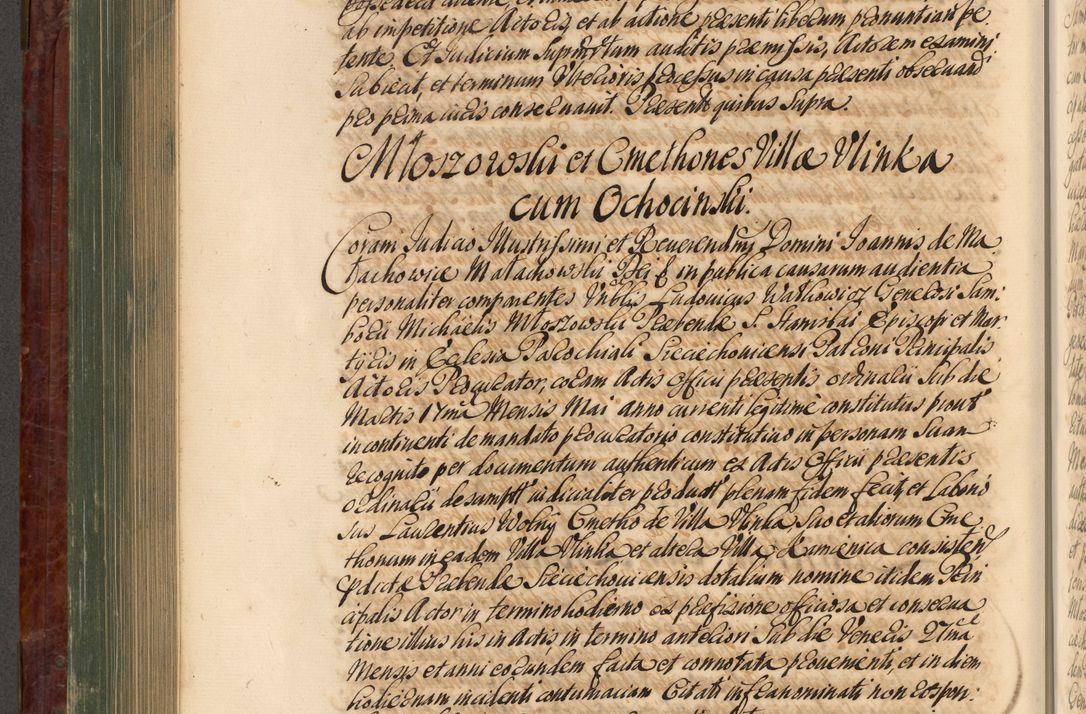 ab impetitione Actorey, et ab actione praesenti liberum pronuntiari pe
tente. Et Judicium Supmóttum auditis praemissis, Actorem examini
Subiecit, et terminum Vlterioris processus in causa praesenti obseruand
pro prima iuris conseruauit. Praesente quibus Supra.
Młoszowski et Cmethones Villæ Vlinka
cum Ochocinski.
Coram Judicio Illustrissimi et Reuerendissimi Domini Joannis de Ma
łachowice Małachowski in publica causarum audientia
personaliter comparentes Nobilis Ludouicus Wałkowicz Generosi Sam
borii Michaëlis Młoszowski Praebendæ S. Stanislai Episcopi et Mar
tyris in Ecclesia Parochiali Sieciechouicensi Patroni Principalis
Actoris Procurator, coram Actis Officii praesentis ordinarii Sub die
Martis 17ma Mensis Maii anno currenti legitimè constitutus prout
in continenti de mandato procuratorio constitutiuo in personam Suam
recognito per documentum authenticum ex Actis Officii praesentis
ordinarii desumptt iudicialiter productt plenam fidem fecit, et Labori
sus Laurentius Wolny Cmetho de Villa Vlinka Suo et aliorum Cme
thonum in eadem Villa Vlinka et altera Villa Kamienica consisten
praedictæ Praebendæ Sieciechouicensis dotalium nomine itidem Prin
cipalis Actor in termino hodierno ex praefixione officiosa et conserua
tione illius his in Actis in termino anteriori Sub die Veneris 27ma
Mensis et anni eorundem facta et connotata prouenienti, et in diem
hodiernam incidenti contumaciam Citati infranominati non compor: